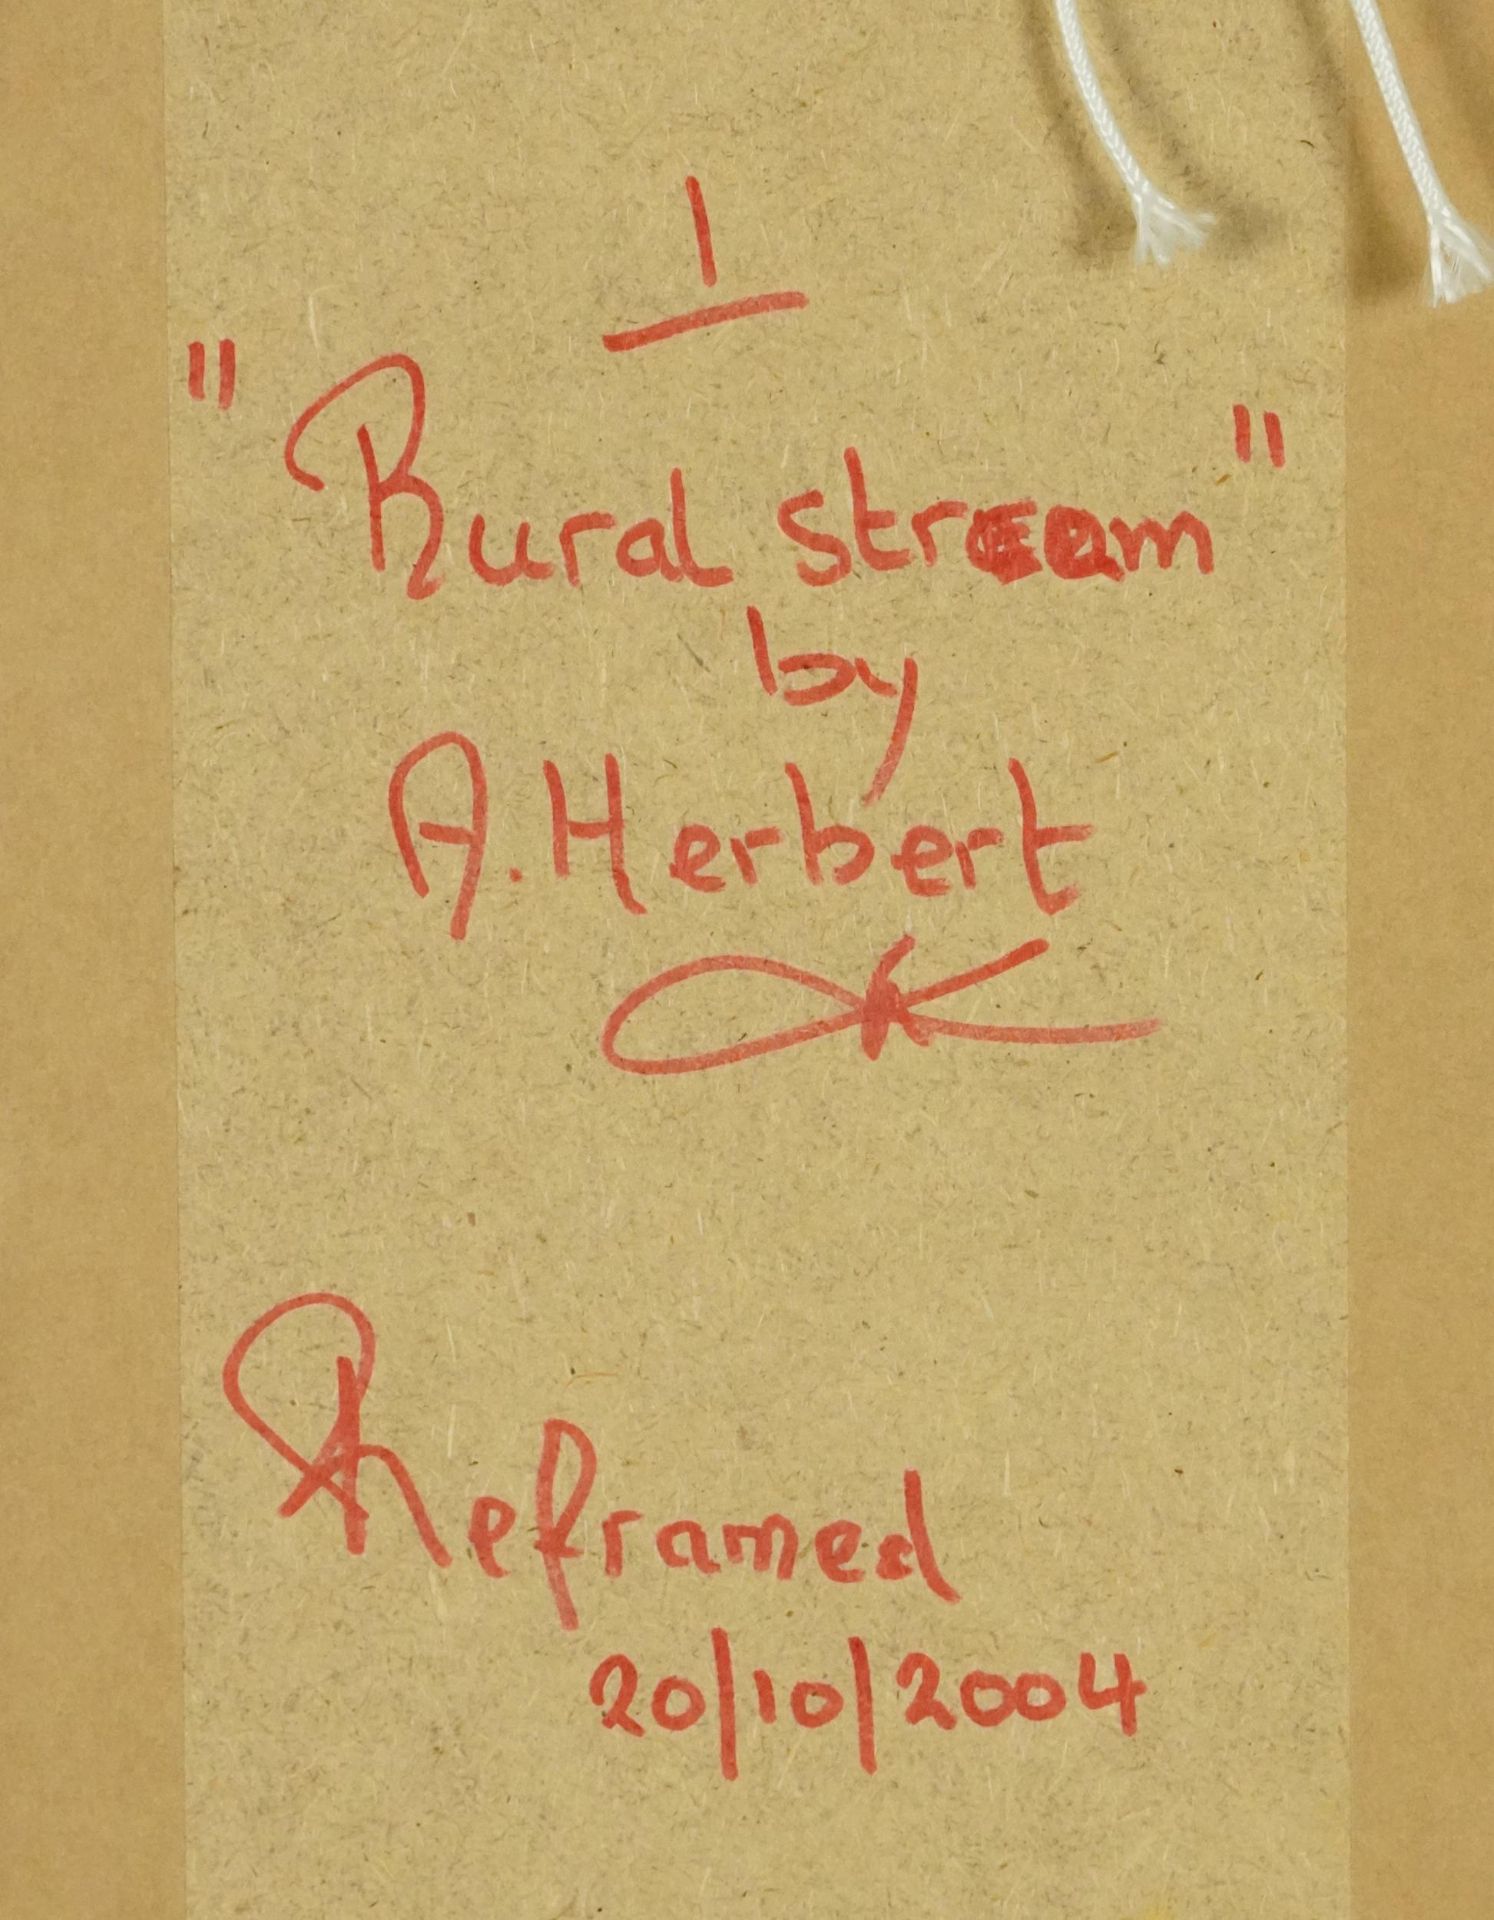 1
"Rural stream"
by
A. Herbert
Reframed
20/10/2004